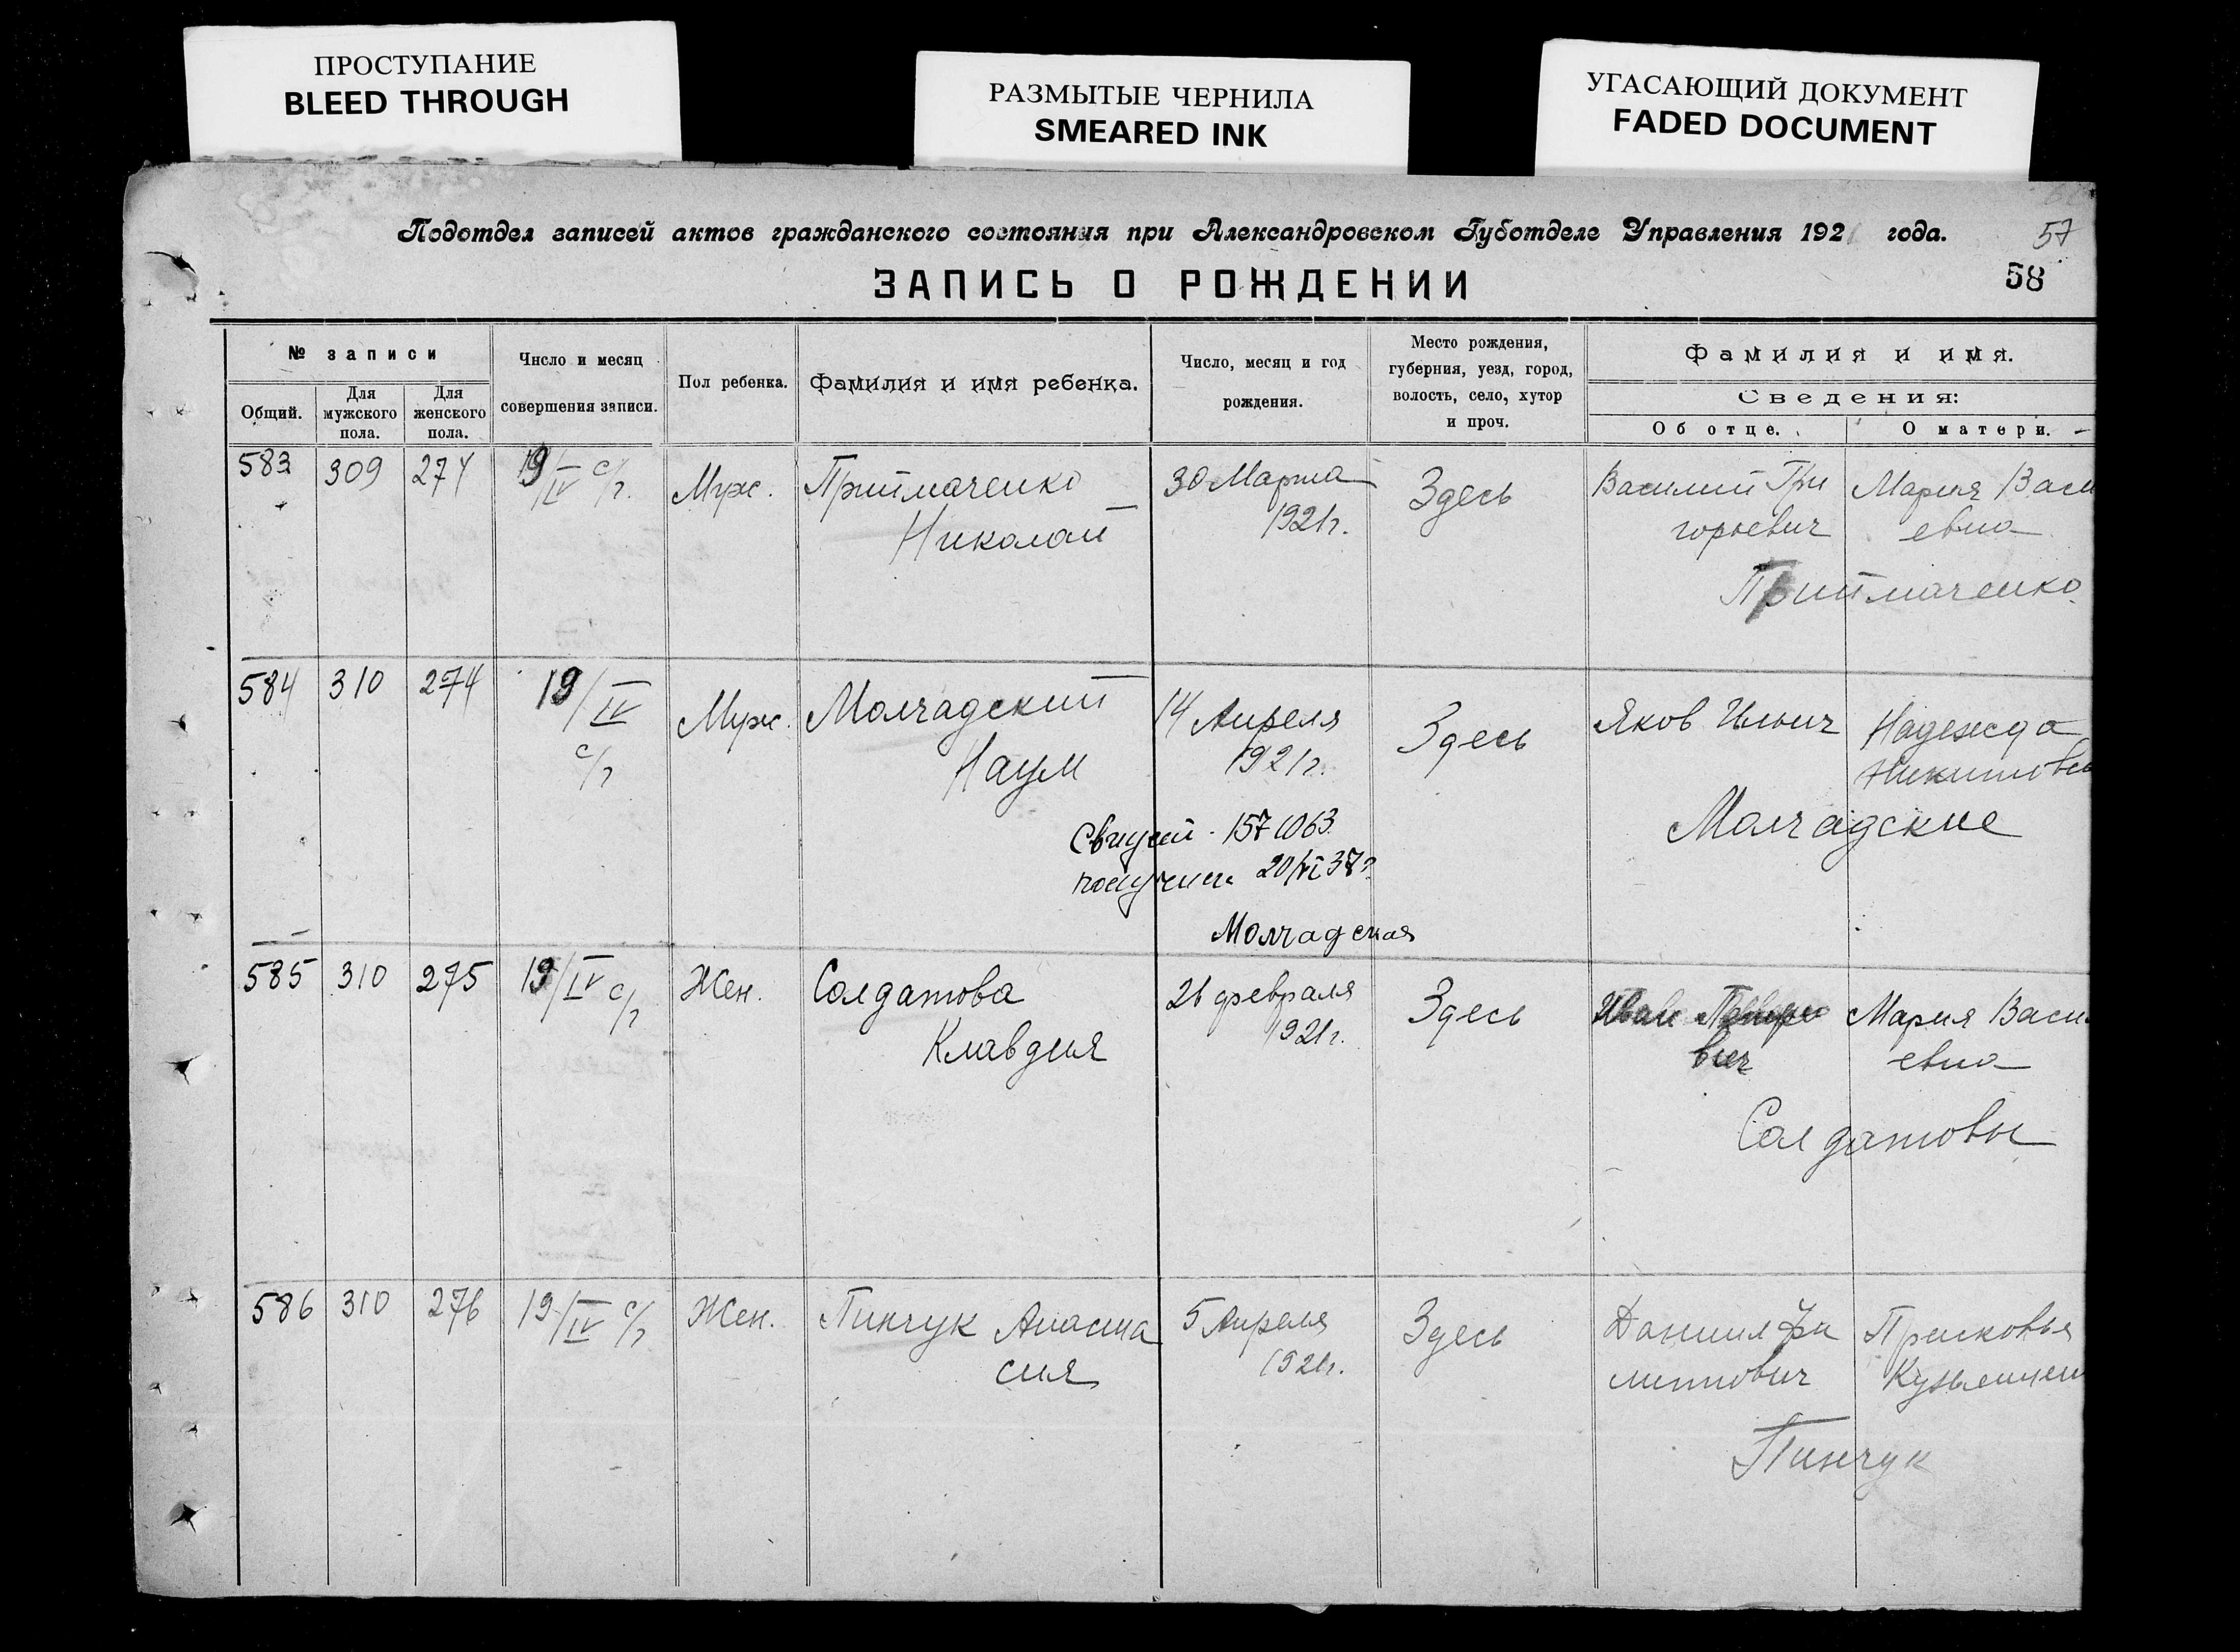 ПРОСТУПАНИЕ
BLEED THROUGH
РАЗМЫТЫЕ ЧЕРНИЛА
SMEARED INK
УГАСАЮЩИЙ ДОКУМЕНТ
FADED DOCUMENT
Подотдел записей актов гражданского состояния при Александровском Губотделе Управления 1921 года.
57
58
ЗАПИСЬ О РОЖДЕНИИ
№ записи
Общий.
Для мужского пола.
Для женского пола.
Число и месяц
совершения записи.
Пол ребенка.
Фамилия и имя ребенка.
Число, месяц и год
рождения.
Место рождения,
губерния, уезд, город,
волость, село, хутор
и проч.
Фамилия и имя.
Сведения:
Об отце.
О матери.
583 309 274 19/IV с/г. Муж. Приймаченко 30 Марта Здесь Василий Гри Мария Васи
Николай 1921г. горьевич евна
Приймаченко
584 310 274 19/IV Муж. Молчадский 14 Апреля Здесь Яков Ильич Надежда
с/г Наум 1921г. Никитовн
Молчадские
Свидет. 157 1063
получила 20/VI 37г.
Молчадская
585 310 275 19/IV с/г Жен. Солдатова 26 февраля Здесь Иван Мария Васи
Клавдия 1921г. вич евна
Солдатовы
586 310 276 19/IV с/г Жен. Пинчук Анаста 5 Апреля Здесь Даниил Фи Прасковья
сия 1921г. липпович
Пинчук